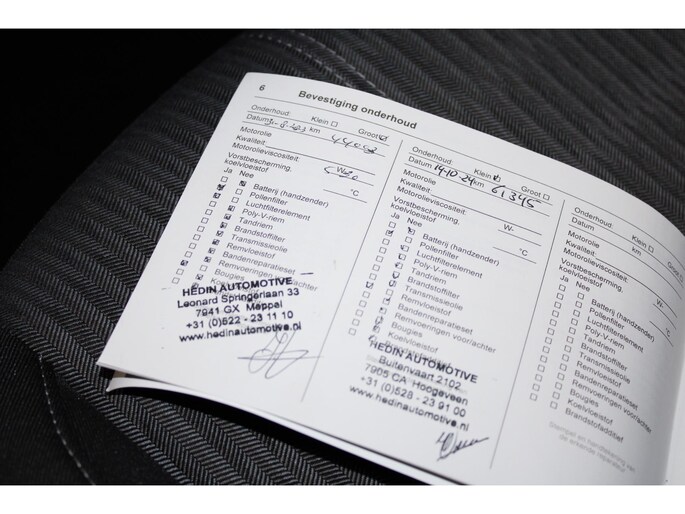 6 Bevestiging onderhoud
Onderhoud: Klein Groot
Datum km
Motorolie
Kwaliteit:
Motorolieviscositeit: W-
Vorstbescherming, koelvloeistof °C
Ja Nee
Batterij (handzender)
Pollenfilter
Luchtfilterelement
Poly-V-riem
Tandriem
Brandstoffilter
Transmissieolie
Remvloeistof
Bandenreparatieset
Remvoeringen voor/achter
HEDIN AUTOMOTIVE
Leonard Springerlaan 33
7941 GX Meppel
+31 (0)522 - 23 11 10
www.hedinautomotive.nl
Onderhoud: Klein Groot
Datum 14-10-24 km 61345
Motorolie
Kwaliteit:
Motorolieviscositeit: W-
Vorstbescherming, koelvloeistof °C
Ja Nee
Batterij (handzender)
Pollenfilter
Luchtfilterelement
Poly-V-riem
Tandriem
Brandstoffilter
Transmissieolie
Remvloeistof
Bandenreparatieset
Remvoeringen voor/achter
Bougies
Koelvloeistof
HEDIN AUTOMOTIVE
Buitenvaart 2102
7905 CA Hoogeveen
+31 (0)528 - 23 91 00
www.hedinautomotive.nl
Onderhoud: Klein
Datum
Motorolie
Kwaliteit:
Motorolieviscositeit:
Vorstbescherming,
koelvloeistof
Ja Nee
Batterij (handzender)
Pollenfilter
Luchtfilterelement
Poly-V-riem
Tandriem
Brandstoffilter
Transmissieolie
Remvloeistof
Bandenreparatieset
Remvoeringen voor/achter
Bougies
Koelvloeistof
Brandstofadditief
Stempel en handtekening van
de erkende reparateur